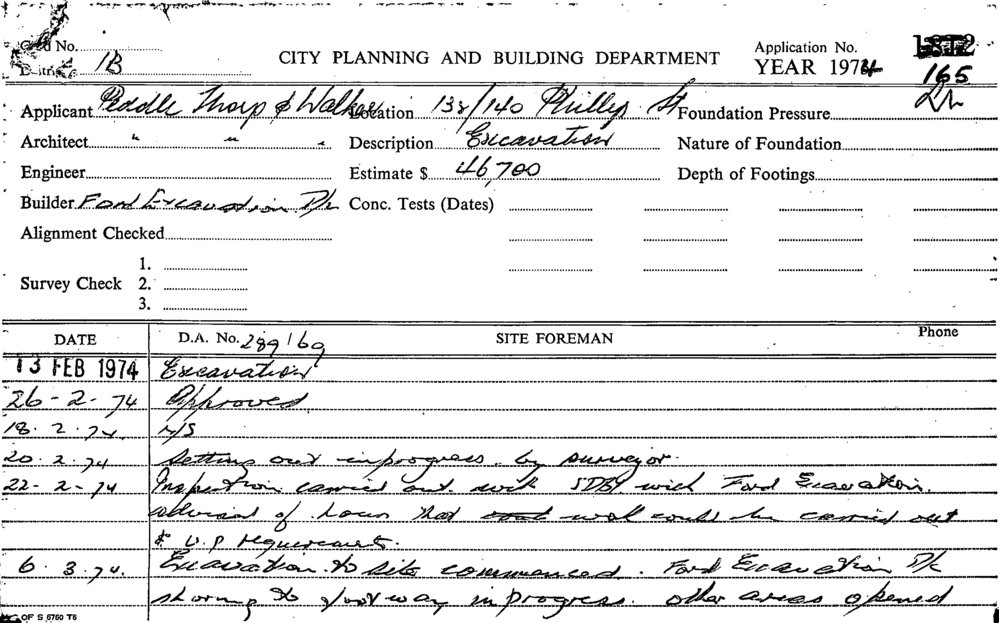 Card No.
District 1B
CITY PLANNING AND BUILDING DEPARTMENT
Application No. 1812
YEAR 1974
165
Applicant Peddle Thorp & Walker Location 138/140 Phillip St Foundation Pressure
Architect " " " Description Excavation Nature of Foundation
Engineer Estimate $ 46,700 Depth of Footings
Builder Ford Excavation P/L Conc. Tests (Dates)
Alignment Checked
1.
Survey Check 2.
3.
DATE D.A. No. 289/69 SITE FOREMAN Phone
13 FEB 1974 Excavation
26-2-74 Approved
18.2.74. N/S
20.2.74 Setting out in progress by surveyor.
22-2-74 Inspection carried out with SDBI with Ford Excavation.
advised of hours that work could be carried out
& requirements.
6.3.74. Excavation to site commenced. Ford Excavation P/L
shoring to footway in progress. other areas opened
OF S 6760 T6